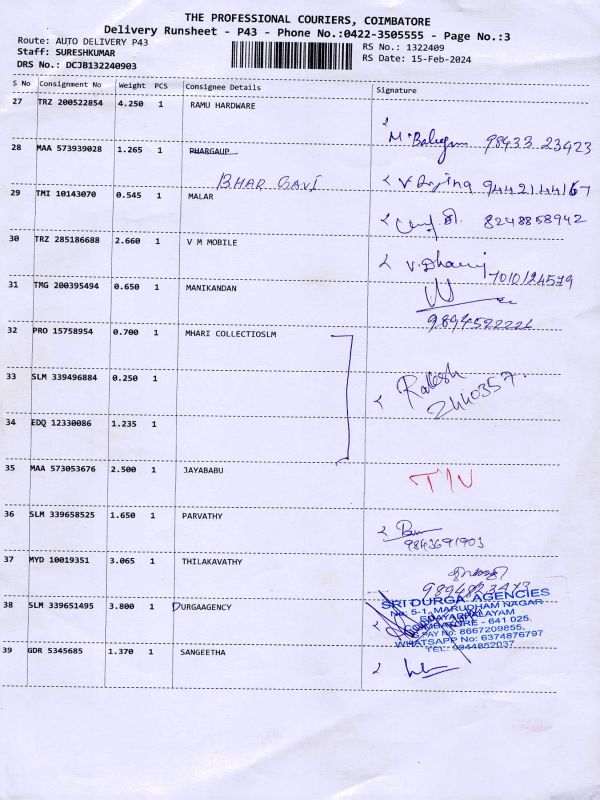 THE PROFESSIONAL COURIERS, COIMBATORE
Delivery Runsheet - P43 - Phone No.:0422-3505555 - Page No.:3
Route: AUTO DELIVERY P43
RS No.: 1322409
Staff: SURESHKUMAR
RS Date: 15-Feb-2024
DRS No.: DCJB132240903
S No Consignment No Weight PCS Consignee Details Signature
27 TRZ 200522854 4.250 1 RAMU HARDWARE
98433 23423
28 MAA 573939028 1.265 1 BHARGAUP
BHAR GAVI
9442144167
29 TMI 10143070 0.545 1 MALAR
8248858942
30 TRZ 285186688 2.660 1 V M MOBILE
V. Dhanuj 7010124579
31 TMG 200395494 0.650 1 MANIKANDAN
9894522221
32 PRO 15758954 0.700 1 MHARI COLLECTIOSLM
33 SLM 339496884 0.250 1
Rakesh
2440357.
34 EDQ 12330086 1.235 1
35 MAA 573053676 2.500 1 JAYABABU
T/N
36 SLM 339658525 1.650 1 PARVATHY
9843691903
37 MYD 10019351 3.065 1 THILAKAVATHY
9894823473
38 SLM 339651495 3.800 1 DURGAAGENCY
SRI DURGA AGENCIES
No: 5-1, MARUDHAM NAGAR
EDAYARPALAYAM
COIMBATORE - 641 025.
G PAY No: 8667209855,
WHATSAPP No: 6374876797
TEL: 9944852037
39 GDR 5345685 1.370 1 SANGEETHA